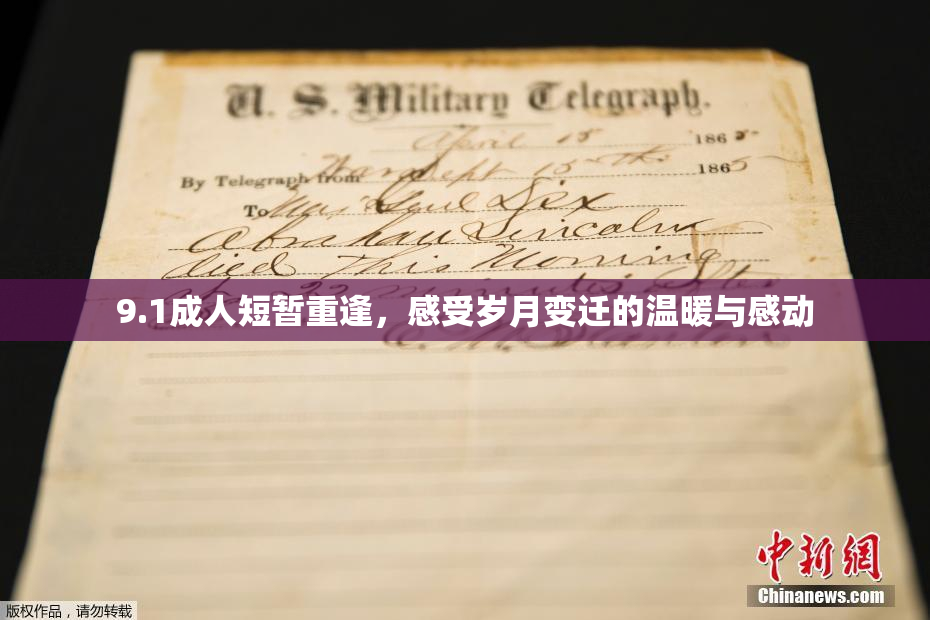 U. S. Military Telegraph.
April 15 1865
By Telegraph from War Dept 15th 1865
To Maj Genl Dix
Abraham Lincoln
died This Morning
9.1成人短暂重逢，感受岁月变迁的温暖与感动
中新网
Chinanews.com
版权作品，请勿转载